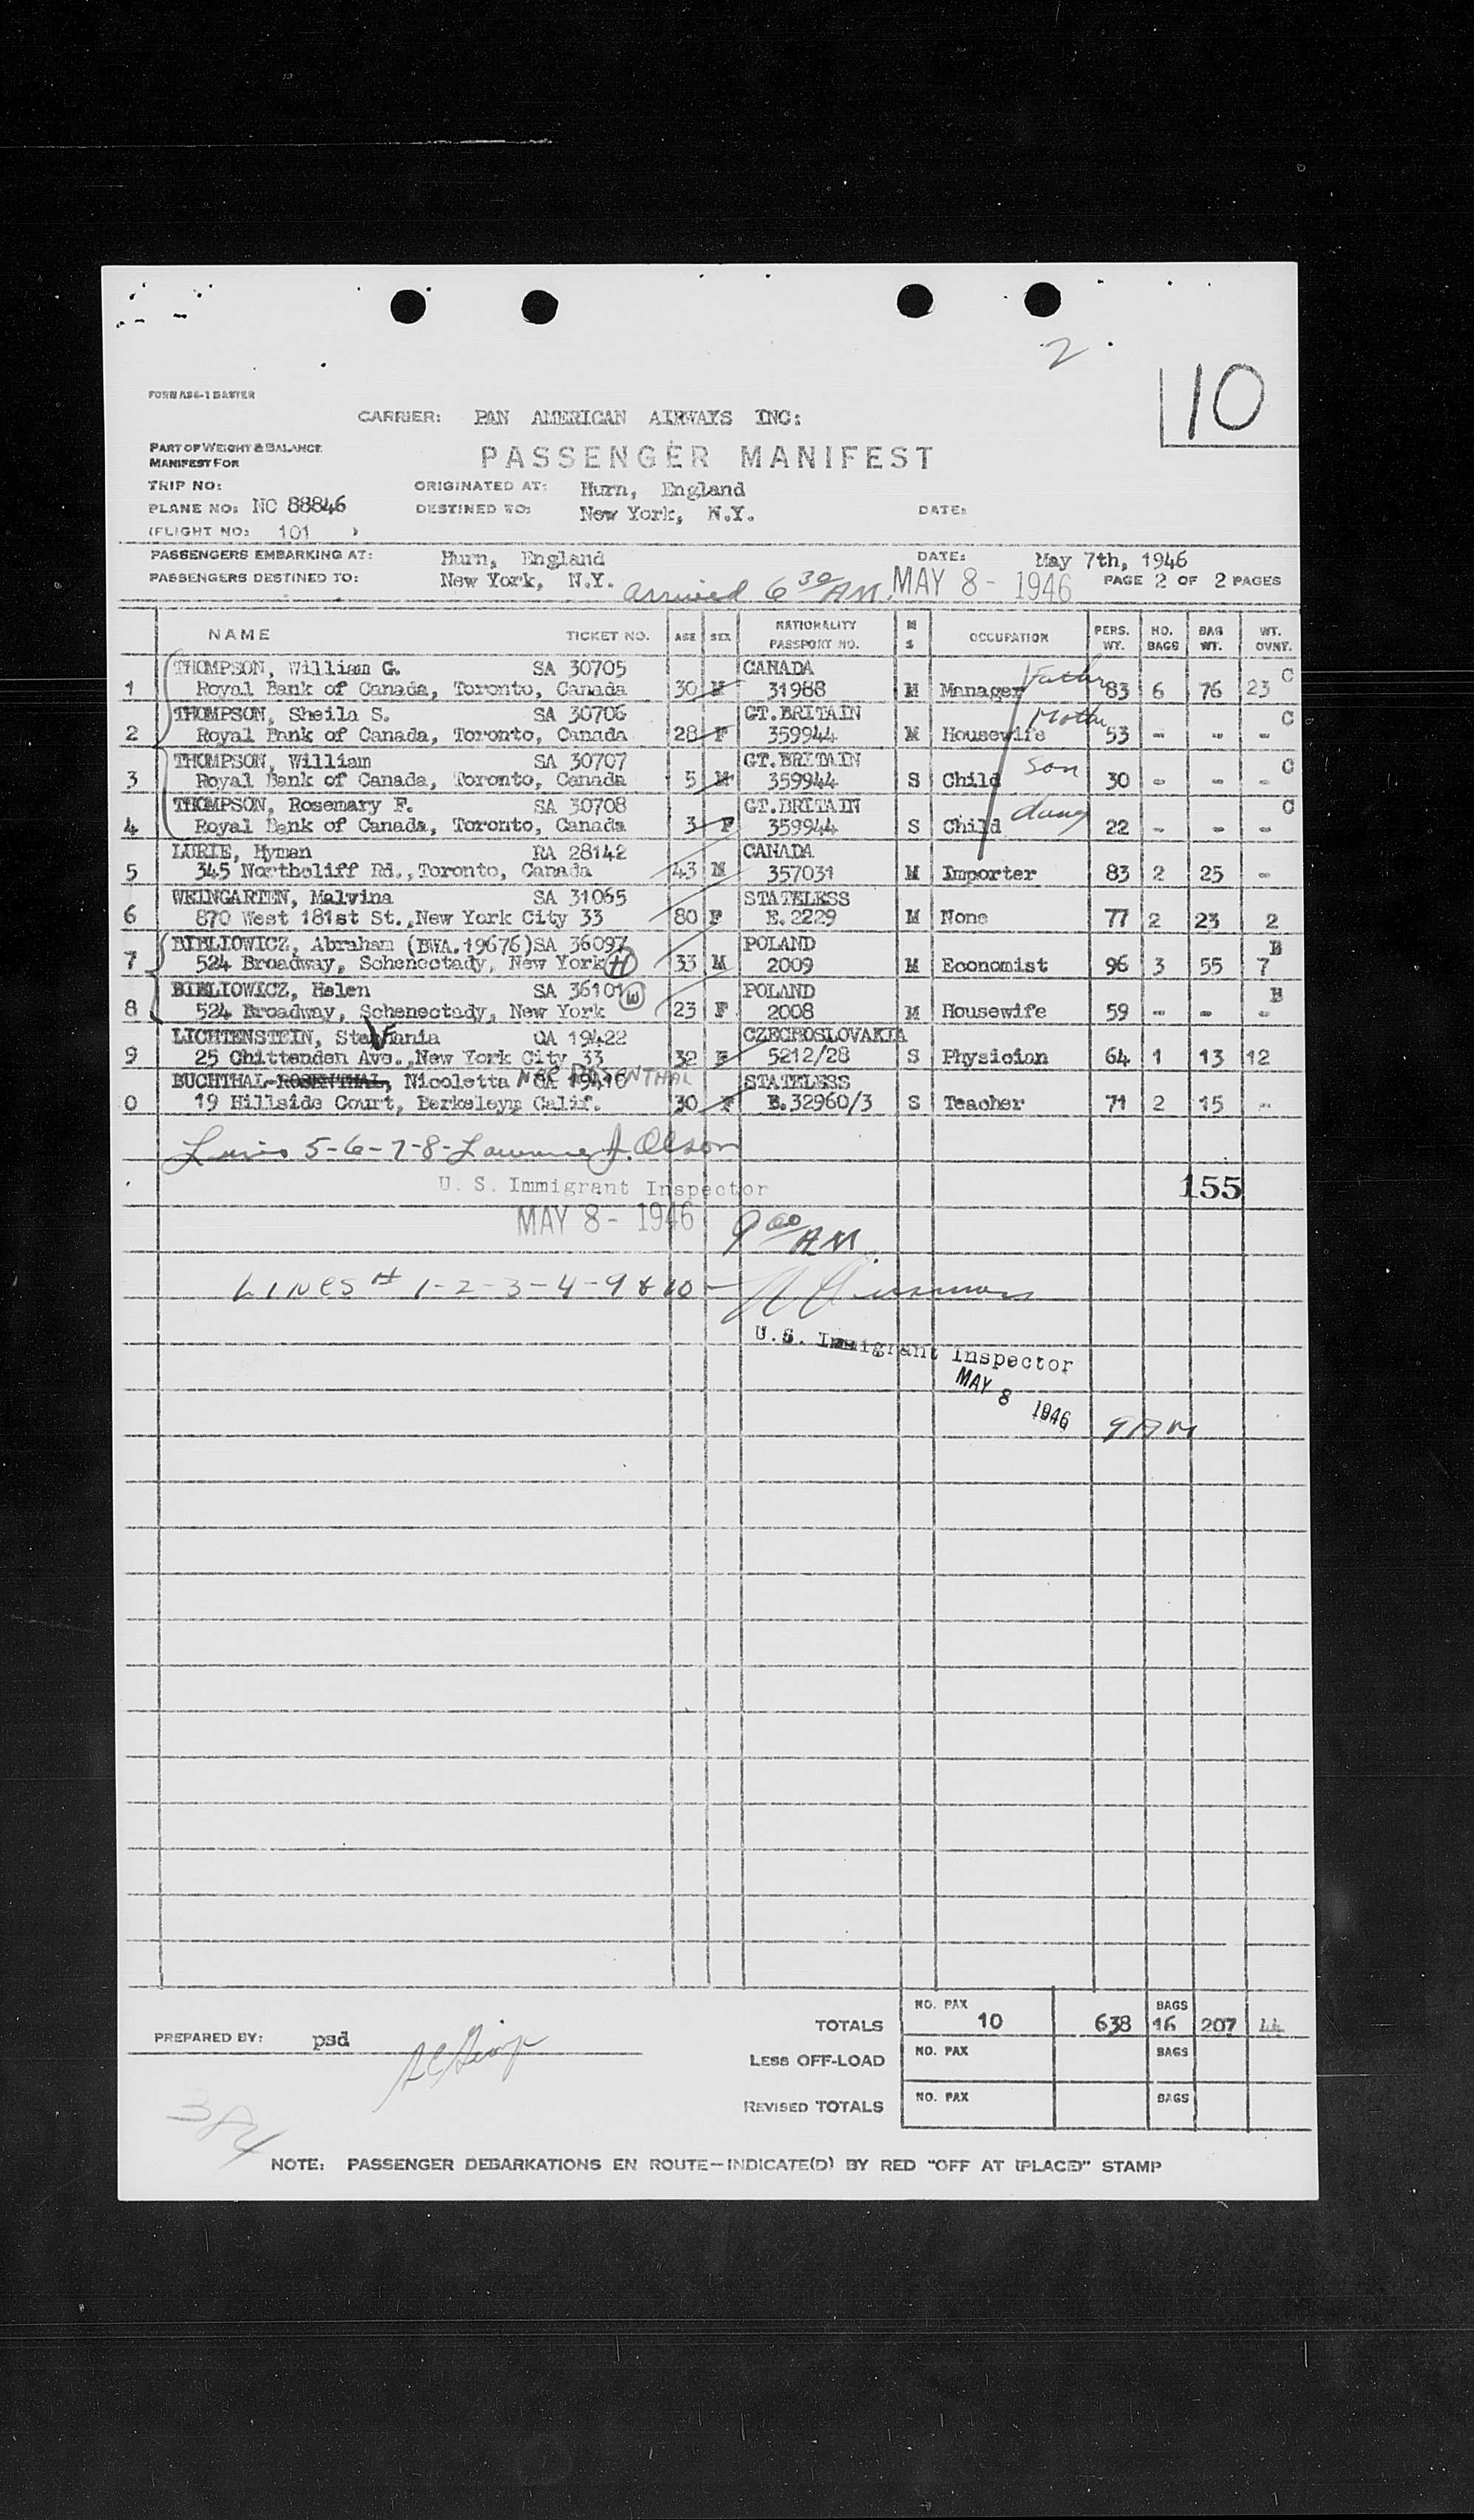 2
10
FORM A86-1 MASTER
CARRIER: PAN AMERICAN AIRWAYS INC:
PART OF WEIGHT & BALANCE
MANIFEST FOR
PASSENGER MANIFEST
TRIP NO:
ORIGINATED AT: Hurn, England
PLANE NO: NC 88846
DESTINED TO: New York, N.Y.
DATE:
(FLIGHT NO: 101 )
PASSENGERS EMBARKING AT: Hurn, England DATE: May 7th, 1946
PASSENGERS DESTINED TO: New York, N.Y. arrived 6 30 AM. MAY 8 - 1946 PAGE 2 OF 2 PAGES
NAME TICKET NO. AGE SEX NATIONALITY PASSPORT NO. M S OCCUPATION PERS. WT. NO. BAGS BAG WT. WT. OVNT.
THOMPSON, William G. SA 30705 CANADA Father C
1 Royal Bank of Canada, Toronto, Canada 30 M 31988 M Manager 83 6 76 23
THOMPSON, Sheila S. SA 30706 GT.BRITAIN Mother C
2 Royal Bank of Canada, Toronto, Canada 28 F 359944 M Housewife 53 - - -
THOMPSON, William SA 30707 GT.BRITAIN Son C
3 Royal Bank of Canada, Toronto, Canada 5 M 359944 S Child 30 - - -
THOMPSON, Rosemary F. SA 30708 GT.BRITAIN daug C
4 Royal Bank of Canada, Toronto, Canada 3 F 359944 S Child 22 - - -
LURIE, Hyman RA 28142 CANADA
5 345 Northcliff Rd., Toronto, Canada 43 M 357031 M Importer 83 2 25 -
WEINGARTEN, Malvina SA 31065 STATELESS
6 870 West 181st St., New York City 33 80 F E.2229 M None 77 2 23 2
BIBLIOWICZ, Abraham (BWA.19676)SA 36097 POLAND B
7 524 Broadway, Schenectady, New York H 33 M 2009 M Economist 96 3 55 7
BIBLIOWICZ, Helen SA 36101 W POLAND B
8 524 Broadway, Schenectady, New York 23 F 2008 M Housewife 59 - - -
LICHTENSTEIN, Stephania OA 19422 CZECHOSLOVAKIA
9 25 Chittenden Ave., New York City 33 32 F 5212/28 S Physician 64 1 13 12
BUCHTHAL-ROSENTHAL, Nicoletta NEE ROSENTHAL OA 19416 STATELESS
0 19 Hillside Court, Berkeley, Calif. 30 F E.32960/3 S Teacher 71 2 15 -
Lines 5-6-7-8- Lawrence J. Olson
U. S. Immigrant Inspector
155
MAY 8 - 1946 9 00 AM
LINES # 1-2-3-4-9 & 10 -
U.S. Immigrant Inspector
MAY 8 1946 9 AM
TOTALS NO. PAX 10 638 BAGS 16 207 44
PREPARED BY: psd
LESS OFF-LOAD NO. PAX BAGS
REVISED TOTALS NO. PAX BAGS
NOTE: PASSENGER DEBARKATIONS EN ROUTE—INDICATE(D) BY RED "OFF AT (PLACE)" STAMP